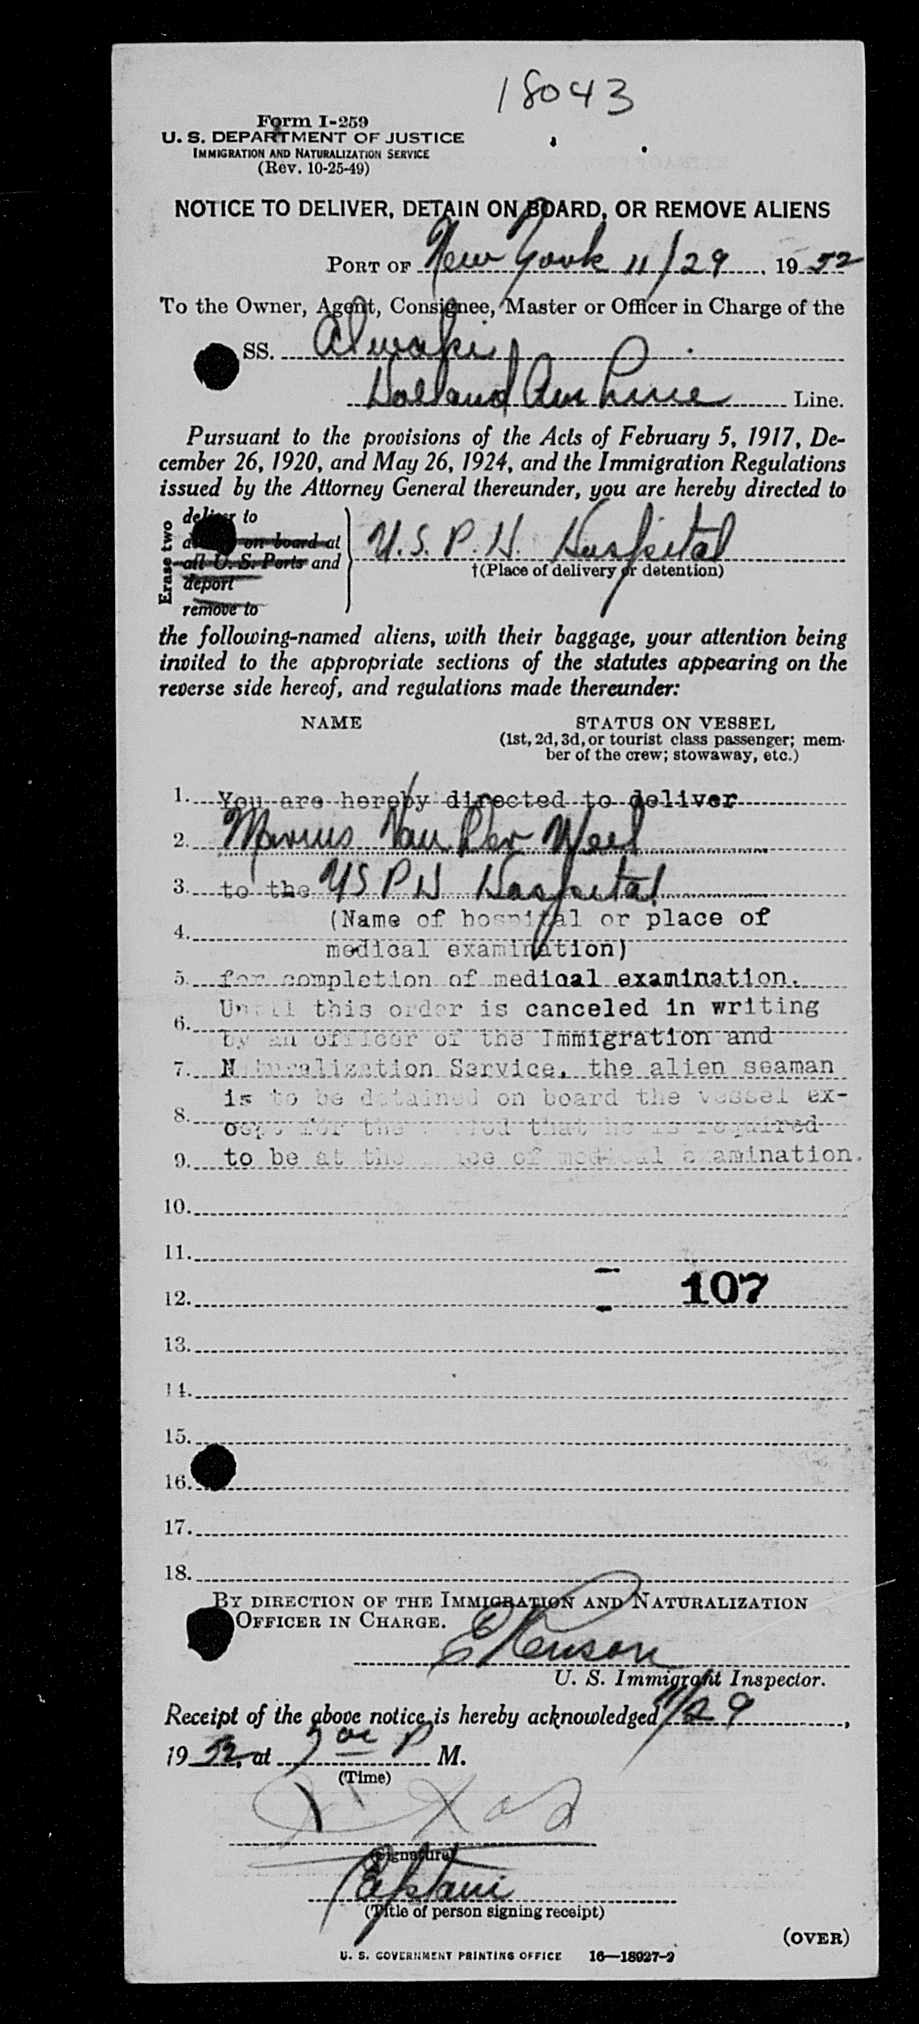 18043
Form I-259
U. S. DEPARTMENT OF JUSTICE
IMMIGRATION AND NATURALIZATION SERVICE
(Rev. 10-25-49)
NOTICE TO DELIVER, DETAIN ON BOARD, OR REMOVE ALIENS
PORT OF New York 11/29, 1952
To the Owner, Agent, Consignee, Master or Officer in Charge of the
SS. Alwaki
Holland Am Line Line.
Pursuant to the provisions of the Acts of February 5, 1917, De-
cember 26, 1920, and May 26, 1924, and the Immigration Regulations
issued by the Attorney General thereunder, you are hereby directed to
Erase two
deliver to
on board at
all U. S. Ports and
deport
remove to
U.S. P. H. Hospital
†(Place of delivery or detention)
the following-named aliens, with their baggage, your attention being
invited to the appropriate sections of the statutes appearing on the
reverse side hereof, and regulations made thereunder:
NAME STATUS ON VESSEL
(1st, 2d, 3d, or tourist class passenger; mem-
ber of the crew; stowaway, etc.)
1. You are hereby directed to deliver
2. Marius Van Der Weel
3. to the U S P H Hospital
(Name of hospital or place of
4.
medical examination)
5. for completion of medical examination.
Until this order is canceled in writing
6.
by an officer of the Immigration and
7. Naturalization Service, the alien seaman
is to be detained on board the vessel ex-
8.
cept for the period that he is required
9. to be at the place of medical examination.
10.
11.
12. 107
13.
14.
15.
16.
17.
18.
BY DIRECTION OF THE IMMIGRATION AND NATURALIZATION
OFFICER IN CHARGE.
U. S. Immigrant Inspector.
Receipt of the above notice is hereby acknowledged 11/29,
1952, at 7 00 P M.
(Time)
(Signature)
Captain
(Title of person signing receipt)
(OVER)
U. S. GOVERNMENT PRINTING OFFICE 16—18927-2